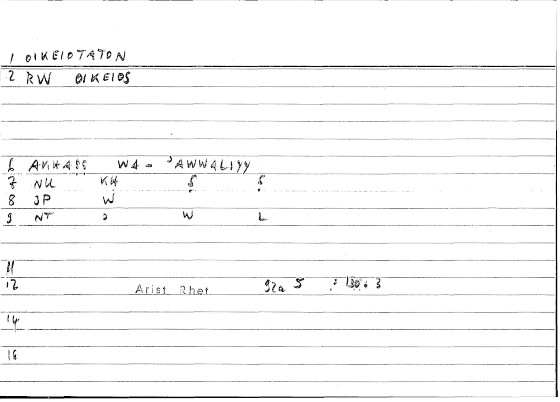 1 OIKEIOTATON
2 RW OIKEIOS
6 AKHAṢṢ WA- ʾAWWALIYY
7 NU KH Ṣ Ṣ
8 JP W
9 NT ʾ W L
11
12 Arist Rhet 92a 5 : 3
14
16